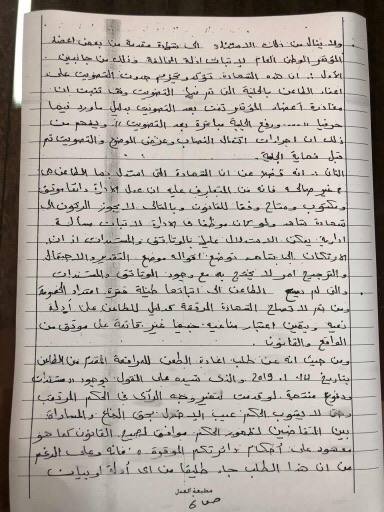 ولا ينال من ذلك الاستناد الى شهادة مقدمة من بعض اعضاء
المؤتمر الوطني العام لإثبات تلك الحالة وذلك من جانبين
الأول: ان هذه الشهادة تؤكد وتجزم حدوث التصويت على
اعفاء الطاعن بالجلسة التى تم فيها التصويت وهنا تثبت ان
مغادرة أعضاء المؤتمر تمت بعد التصويت بدليل ماورد فيها
حرفيا (( .... ورفع الجلسة مباشرة بعد التصويت )) ويفهم من
ذلك ان اجراءات اكتمال النصاب وعرض الموضوع والتصويت تم
قبل نهاية الجلسة.
الثانى: انه فضلا عن ان الشهادة التى استدل بها الطاعن هى
غير صالحة فانه من المتعارف عليه ان عمل الادارة دائما موثق
ومكتوب ومتاح وفقا للقانون وبالتالى لا يجوز الركون الى
شهادة شاهد ولو كان موظفا فى الادارة لاثبات مسالة
ادارية يمكن الاستدلال عليها بالوثائق والمستندات اذ ان
الارتكان الى شاهد توضع اقواله موضع التقدير والاحتمال
والترجيح امر لا يحتج به مع وجود الوثائق والمستندات
والتى لم يسع الطاعن الى اثباتها طيلة فترة امتداد الخصومة
ومن ثم لا تصلح الشهادة المرفقة كدليل للطاعن على أدلة
نعيه ويتعين اعتبار مناعيه جميعا غير قائمة على موثق من
الواقع والقانون
ومن حيث انه عن طلب اعادة الطعن للمرافعة المقدم من الطاعن
بتاريخ ١٤ . ١ . 2019 والذى شيده على القول بوجود مستندات
ودفوع منتجة لو قدمت لتغير وجه الرأى فى الحكم المرتقب
وحتى لا يشوب الحكم عيب الاخلال بحق الدفاع والمساواة
بين المتقاضين لظهور الحكم موافق لصحيح القانون كما هو
معهود على أحكام دائرتكم الموقرة، فانه وعلى الرغم
من ان هذا الطلب جاء طليقا من اى أدلة او بيانات
مطبعة العدل
ص 6